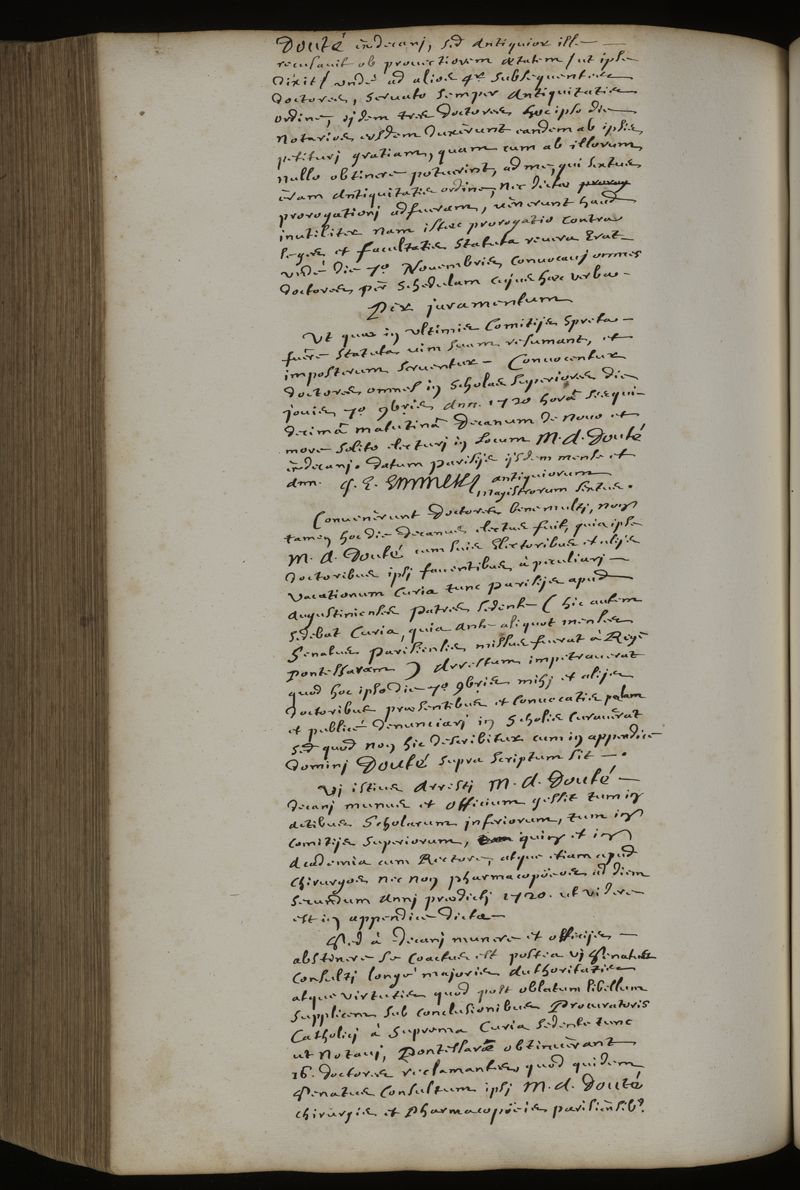 Douté indecanj, sed antiquior ille
recusavit ob provectiorem ætatem / ut ipse
dixit / undé ad alios 4ᵒʳ subsequentes
doctores, servato semper antiquitatis
ordine, ijdem tres doctores hoc ipso die
Notarios eosdem duxerunt eandem ab ipsis
petiturj gratiam, quam cum ab illorum
nullo obtinere potuerint, ad me, qui sextus
eram antiquitatis ordine, nec dictæ prorog
prorogationj adfueram, venerunt haud
inutiliter nam istæc prorogatio contra
leges et facultatis statuta revera erat
undé die 7ᵒ Novembris convocavj omnes
doctores per schedulam cujus hæc verba
Per juramentum
Ut quæ in ultimis Comitijs spreta
fuére statuta vim suam resumant, et
imposterum serventur - Convocentur
doctores omnes in scholas superiores die
jovis 7ᵒ 9bris ann. 1720 horâ sesqui-
decimâ matutinâ decanum de novo et
more solito electurj in locum M. d. Douté
indecanj. datum parisijs ijsdem mense et
ann. f. E. Emmerez antiquiorum
magistrorum sextus.
Convenérunt doctores bene multj, non
tamen hoc die decanus electus fuit, quia ipse
M. d. Douté cum suis Electoribus et alijs
doctoribus ipsj faventibus à peculiarj
vacationum Curia tunc parisijs apud
Augustinenses patres sedente ( hic autem
sedebat Curia, quia ante aliquot menses
Senatus parisiensis missus fuerat à Rege
pontessaram ) Arrestum impetraverat
quod hoc ipso die 7ᵒ 9bris mihj et alijs
doctoribus præsentibus et convocatis palam
et publicé denunciarj in scholis curavérat
sed quod non hic describitur cum in appendice
dominj Douté supra scriptum sit.
Vj istius Arrestj M. d. Douté
decanj munus et officium gessit tum in
actibus scholarum inferiorum, tum in
comitijs superiorum, quin et in
Academia cum Rectore, atque etiam apud
chirurgos nec non pharmacopœos ad diem
secundum annj prædictj 1720. ut videre
est in appendice dicta
Sed à decanj munere et officijs
abstinere se coactus est postea vj Senatus
Consultj longé majoris authoritatis
atque virtutis quod post oblatum libellum
supplicem sub conclusionibus Procuratoris
Catholicj à suprema Curia sedente tunc
ut Notavj, Pontessaræ obtinuérant
16. doctores reclamantes, quod quidem
Senatus Consultum ipsj M. d. Douté
chirurgis et pharmacopœis parisiensibꝰ.